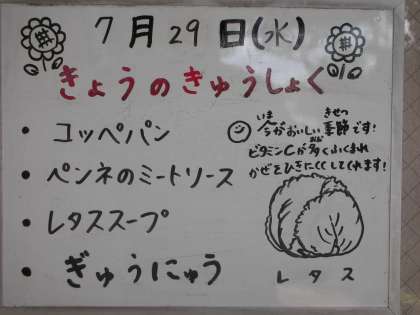 7月29日(水)
きょうのきゅうしょく
• コッペパン
• ペンネのミートソース
• レタススープ
• ぎゅうにゅう
いま きせつ
今がおいしい季節です!
おお
ビタミンCが多くふくまれ
かぜをひきにくくしてくれます!
レタス